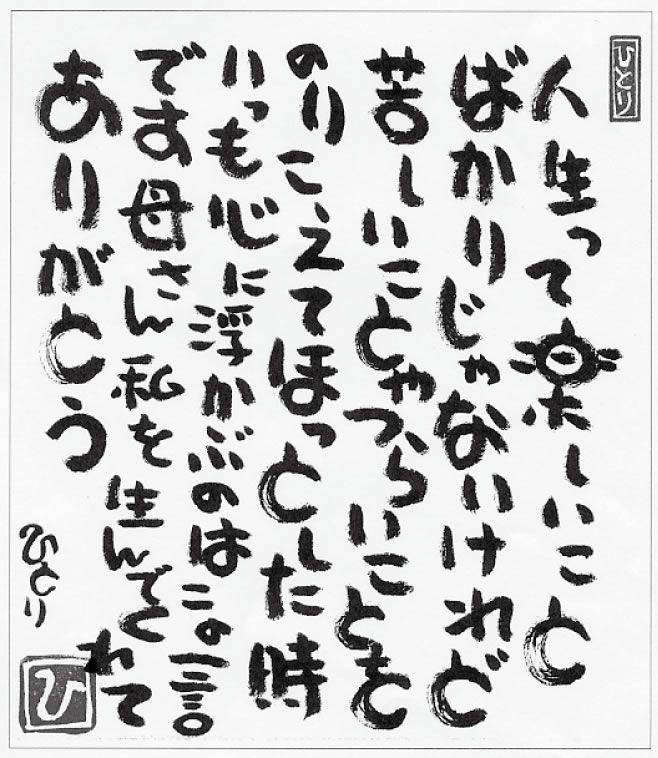 ひとり
人生って楽しいこと
ばかりじゃないけれど
苦しいことやつらいことを
のりこえてほっとした時
いつも心に浮かぶのはこの一言
です母さん私を生んでくれて
ありがとう
ひとり
ひ